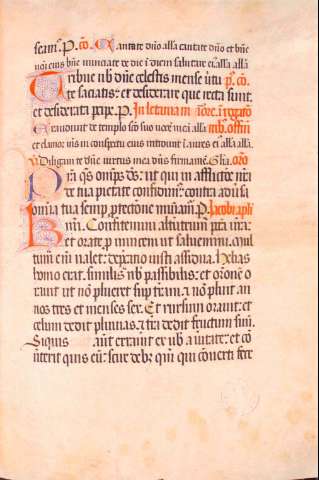 seam. P. co. Cantate dño allã cantate dño et bñe
nomẽ eius bñe nunciate de die ĩ diem salutare ei9 allã allã
Tribue nb dñe celestis mense ũtu p. co.
te saciatis: et desiderare que recta sunt.
et desiderata pcipe. P. In letaniam ĩ rogatõ
Exaudiuit de templo scõ suo vocẽ meã allã mb. offm
et clamor me9 in conspectu eius introiuit ĩ aures ei9 allã allã.
Diligam te dñe virtus mea dñs firmamẽ. Glã. oro
Presta q̃s omps ds: ut qui in afflictõe nrã
de tua pietate confidim9: contra aduersa
omnia tua semp ptectone muniam. P. Jacobi apli
Frm. Confitemini alterutrum pctã vrã:
et orate p inuicem ut saluemini. mul
tum eni ualet: depcatio iusti assidua. Helyas
homo erat. similis nb passibilis: et oratione o
rauit ut nõ plueret sup terram. & nõ pluit an
nos tres et menses sex. Et rursum orauit: et
celum dedit pluuias. & terra dedit fructum suũ.
Siquis aũt errauerit ex vb a ueritate: et cõ
uerterit quis eũ: scire deb& qm̃ qui conuerti fece